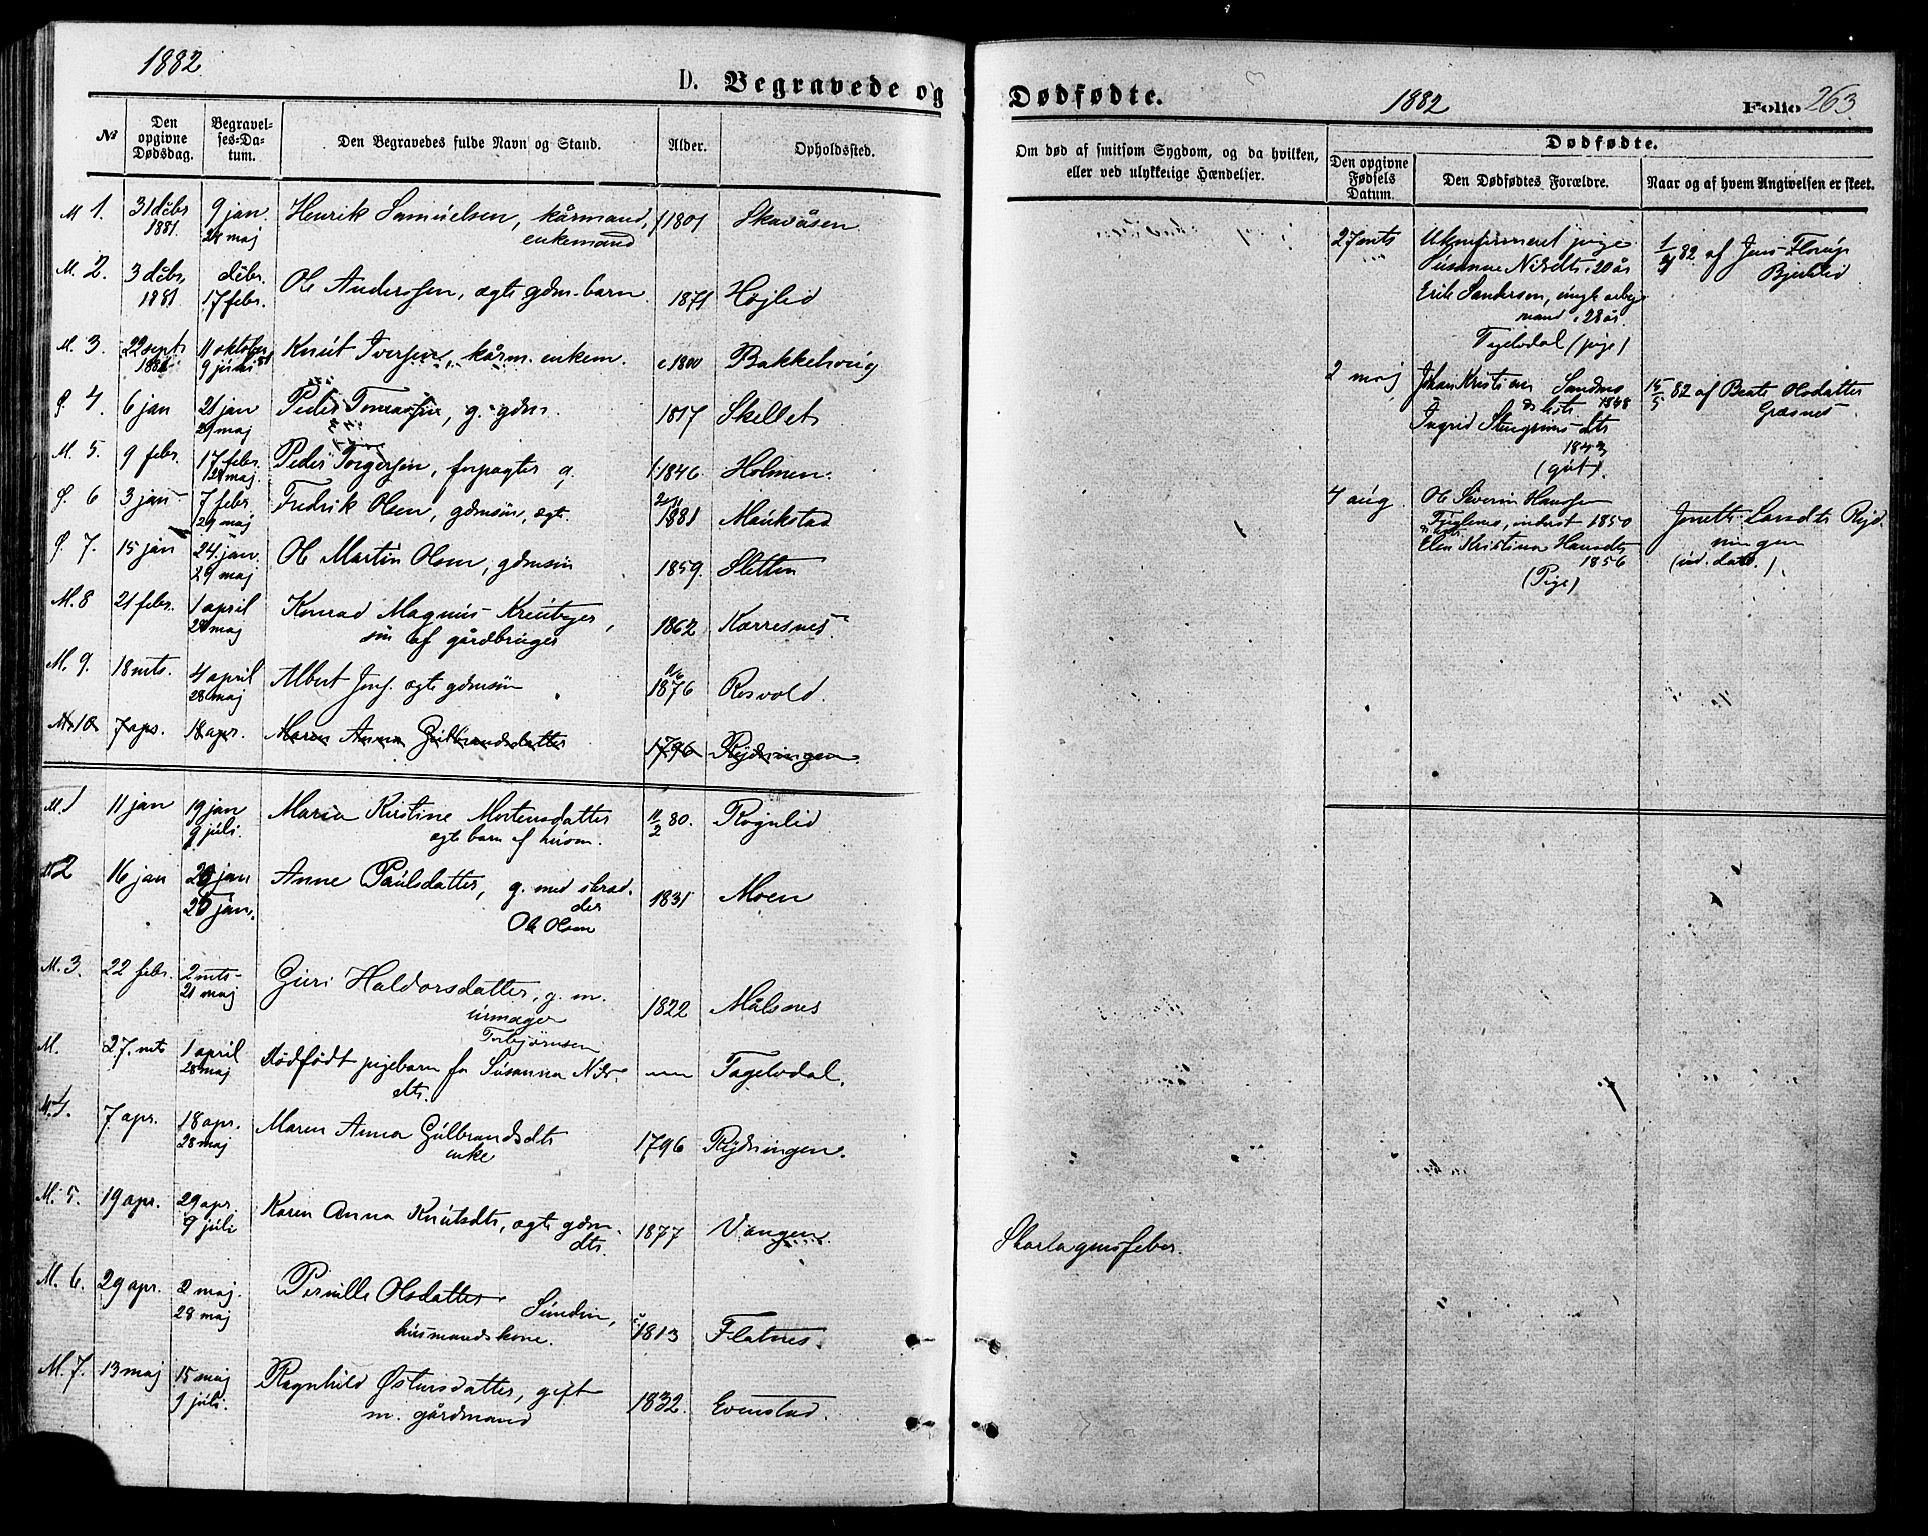 1882
D. Begravede og
№
Den opgivne Dødsdag.
Begravelses-Datum.
Den Begravedes fulde Navn og Stand.
Alder.
Opholdssted.
M 1. 31 dēbr 1881. 9 jan 28 maj Henrik Samuelsen, kårmand, enkemand 1801 Skavåsen
M. 2 3 dēbr 1881 dēbr. 17 febr. Ole Anderssen, ægte gdm. barn 1871 Højlid
M. 3. 22 sept 1881 11 oktober 9 juli 81 Knut Iversen, kårm. enkem. c 1800 Bakkehoug
S. 4. 6 jan 21 jan 29 maj Peder Tomassen, g. gdm. 1817 Skellet
M. 5. 9 febr. 17 febr. 28 maj. Peder Torgersen, forpagter g. 1846. Holmen.
S. 6 3 jan 7 febr 29 maj Fredrik Olsen, gdmsøn, ægte. 1881 Maukstad
S. 7. 15 jan 24. jan. 29 maj Ole Martin Olsen, gdmsøn 1859. Sletten
M. 8 21 febr. 1 april 28 maj Konrad Magnus Kreutzer, søn af gårdbruger 1862 Karresnes.
M. 9. 18 mts. 4 april 28 maj Albert Jens. ægte gdmsøn 11/6 1876 Rosvold.
M. 10 7 apr. 18 apr. Maren Anna Gulbrandsdatter 1796 Rydningen.
M. 1 11 jan 19 jan 9 juli Maria Kirstine Mortensdatter ægte barn af husm. 11/2 80. Rognlid
M 2 16 jan 25 jan Anne Paulsdatter, g. med skrædder Ole Olsen 1831 Moen
M. 3. 22 febr. 2 mts 21 maj Guri Haldorsdatter, g. m. urmager Torbjørnsen 1822 Målsnes
M. 27. mts 1 april 28 maj dødfødt pigebarn fr Susanna Nilsdts. — Fagelvdal.
M. 4. 7 apr. 18 apr. 28 maj Maren Anna Gulbrandsdts enke 1796 Rydningen.
M. 5. 19 apr. 29 apr. 9 juli Karen Anna Knutsdts, ægte gdm. dts. 1877 Vangen.
M. 6. 29 apr. 2 maj. 28 maj Pernille Olsdatter Sundin, husmandskone. 1813 Flatnes.
M. 7. 13 maj 15 maj 9 juli. Ragnhild Østensdatter, gift m. gårdmand 1832. Evenstad.
Dødfødte.
1882
Folio 263
Om død af smitsom Sygdom, og da hvilken, eller ved ulykkelige Hændelser.
Dødfødte.
Den opgivne Fødsels Datum.
Den Dødfødtes Forældre.
Naar og af hvem Angivelsen er skeet.
27 mts Ukonfirmeret pige
Susanne Nilsdts. 20 år
Erik Sanderson, ungk. arbejdsmand, 28 år.
Fagelvdal (pige)
1/4 82 af Jens Florup Bjerklid
2 maj Johan Kristian Sandmo 1848
Ingrid Stengrimsdts 1843
(gut)
15/5 82 af Beate Olsdatter Græsnes.
4 aug Ole Severin Hanssen
Fuglemo, inderst 1850
Elen Kristina Hansdts 1856
(Pige)
Jonetta Larsdts Rydningen
(ind. dato.)
Skarlagensfeber.